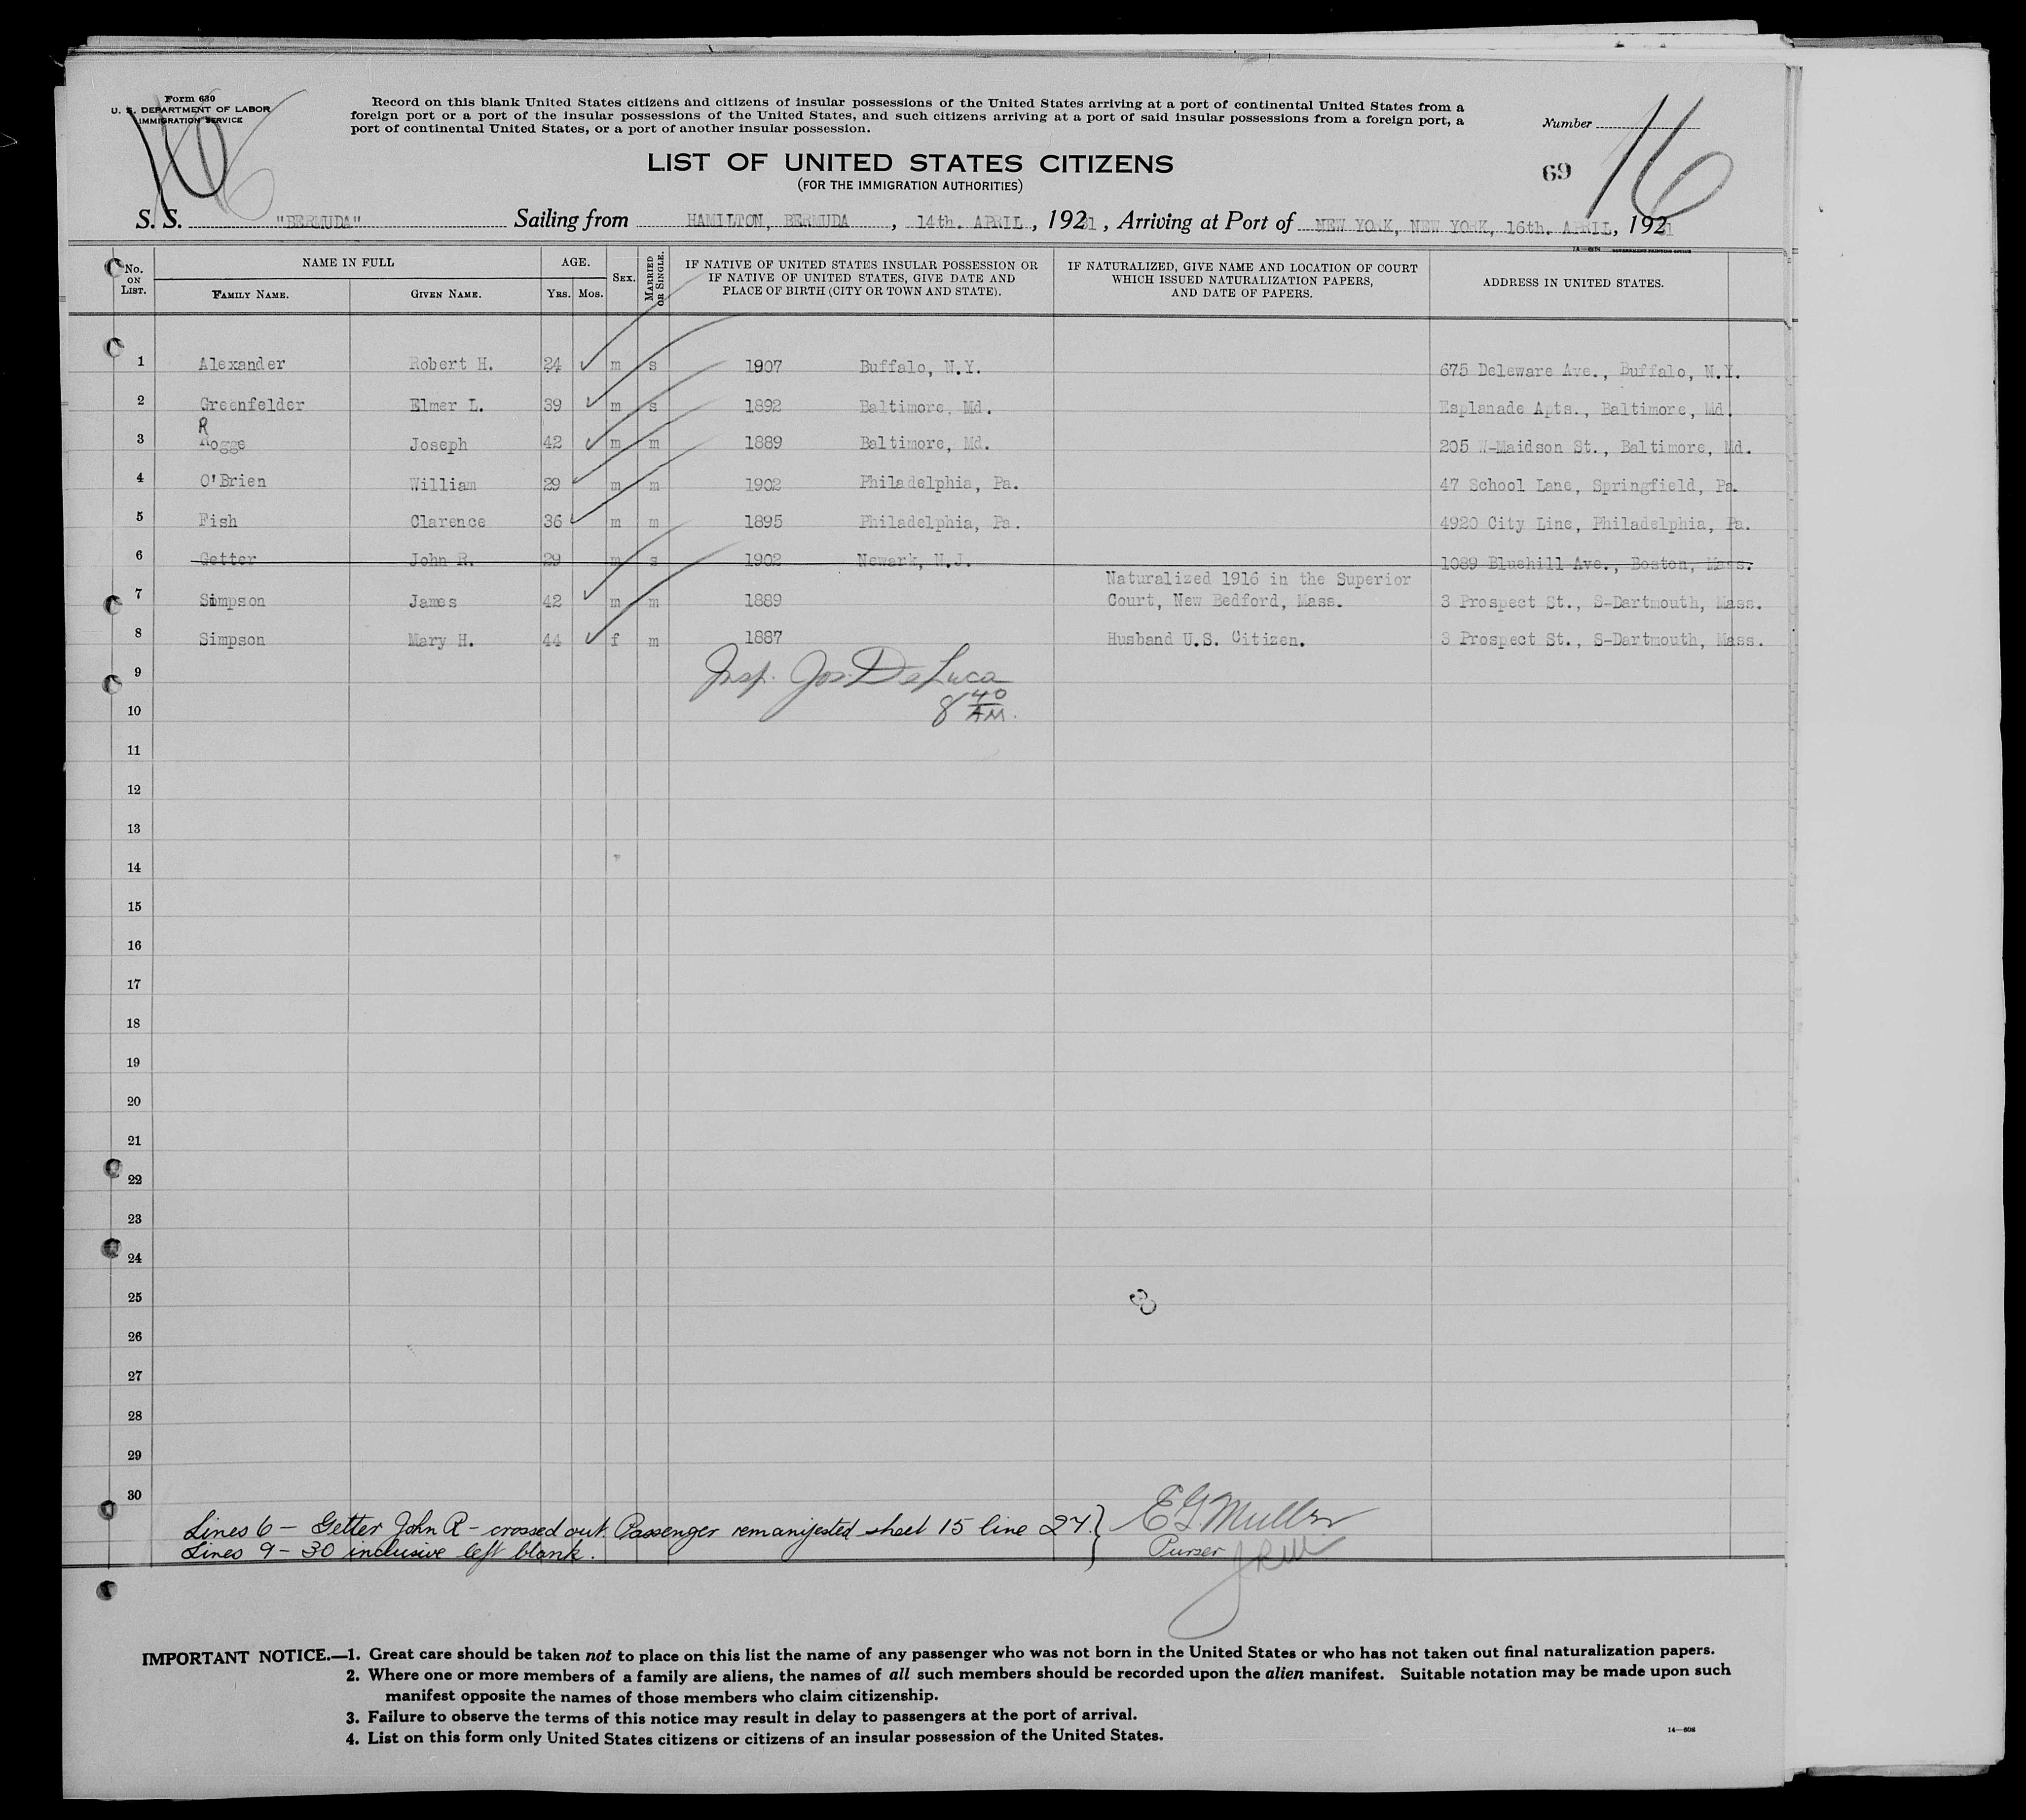 Form 630
U. S. DEPARTMENT OF LABOR
IMMIGRATION SERVICE
16
Record on this blank United States citizens and citizens of insular possessions of the United States arriving at a port of continental United States from a
foreign port or a port of the insular possessions of the United States, and such citizens arriving at a port of said insular possessions from a foreign port, a
port of continental United States, or a port of another insular possession.
Number
69 16
LIST OF UNITED STATES CITIZENS
(FOR THE IMMIGRATION AUTHORITIES)
S. S. "BERMUDA" Sailing from HAMILTON, BERMUDA, 14th. APRIL, 1931, Arriving at Port of NEW YORK, NEW YORK, 16th. APRIL, 1931
No. ON LIST. NAME IN FULL FAMILY NAME. GIVEN NAME. AGE. YRS. MOS. SEX. MARRIED OR SINGLE. IF NATIVE OF UNITED STATES INSULAR POSSESSION OR IF NATIVE OF UNITED STATES, GIVE DATE AND PLACE OF BIRTH (CITY OR TOWN AND STATE). IF NATURALIZED, GIVE NAME AND LOCATION OF COURT WHICH ISSUED NATURALIZATION PAPERS, AND DATE OF PAPERS. ADDRESS IN UNITED STATES.
1 Alexander Robert H. 24 m s 1907 Buffalo, N.Y. 675 Deleware Ave., Buffalo, N.Y.
2 Greenfelder Elmer L. 39 m s 1892 Baltimore, Md. Esplanade Apts., Baltimore, Md.
3 Rogge Joseph 42 m m 1889 Baltimore, Md. 205 W-Maidson St., Baltimore, Md.
4 O'Brien William 29 m m 1902 Philadelphia, Pa. 47 School Lane, Springfield, Pa.
5 Fish Clarence 36 m m 1895 Philadelphia, Pa. 4920 City Line, Philadelphia, Pa.
6 Getter John R. 29 m s 1902 Newark, N.J. 1089 Bluehill Ave., Boston, Mass.
Naturalized 1916 in the Superior
7 Simpson James 42 m m 1889 Court, New Bedford, Mass. 3 Prospect St., S-Dartmouth, Mass.
8 Simpson Mary H. 44 f m 1887 Husband U.S. Citizen. 3 Prospect St., S-Dartmouth, Mass.
9 Insp. Jos. DeLuca
10 8 40 AM.
11
12
13
14
15
16
17
18
19
20
21
22
23
24
25
26
27
28
29
30
Lines 6 - Getter John R - crossed out. Passenger remanifested sheet 15 line 27. } E G Muller
Lines 9 - 30 inclusive left blank. Purser
IMPORTANT NOTICE.—1. Great care should be taken not to place on this list the name of any passenger who was not born in the United States or who has not taken out final naturalization papers.
2. Where one or more members of a family are aliens, the names of all such members should be recorded upon the alien manifest. Suitable notation may be made upon such
manifest opposite the names of those members who claim citizenship.
3. Failure to observe the terms of this notice may result in delay to passengers at the port of arrival.
4. List on this form only United States citizens or citizens of an insular possession of the United States.
14—608